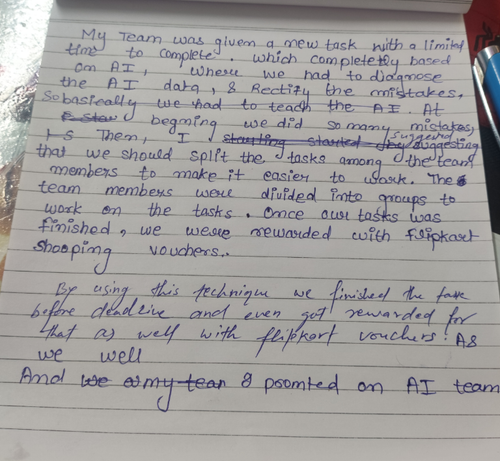 My Team was given a new task with a limited
time to complete. which completetly based
on AI, where we had to diagnose
the AI data, & Rectify the mistakes.
So basically we had to teach the AI. At
begning we did so many mistakes,
Then, I suggested
that we should split the tasks among the team
members to make it easier to work. The
team members were divided into groups to
work on the tasks. Once our tasks was
finished, we were rewarded with flipkart
shooping vouchers.
By using this technique we finished the
before deadline and even got rewarded for
that as well with flipkart vouchers. As
we well
And we my team on AI team